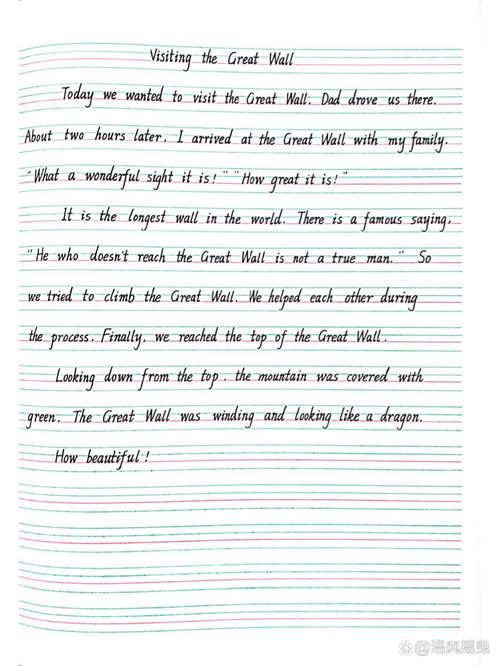 Visiting the Great Wall
Today we wanted to visit the Great Wall. Dad drove us there.
About two hours later, I arrived at the Great Wall with my family.
"What a wonderful sight it is!" "How great it is!"
It is the longest wall in the world. There is a famous saying,
"He who doesn't reach the Great Wall is not a true man." So
we tried to climb the Great Wall. We helped each other during
the process. Finally, we reached the top of the Great Wall.
Looking down from the top, the mountain was covered with
green. The Great Wall was winding and looking like a dragon.
How beautiful!
@洛风摇曳